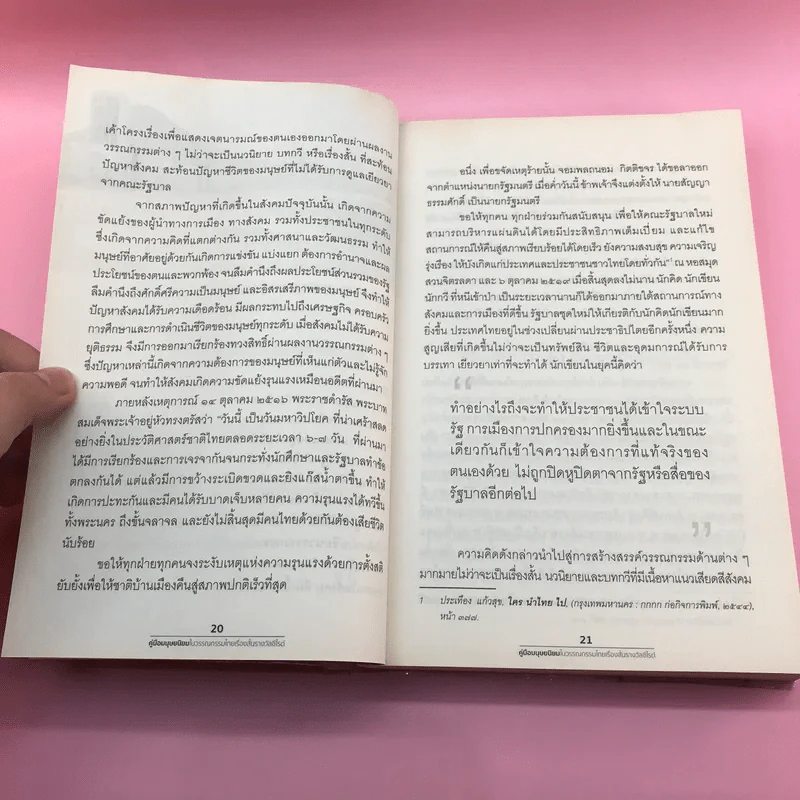 เค้าโครงเรื่องเพื่อแสดงเจตนารมณ์ของตนเองออกมาโดยผ่านผลงาน
วรรณกรรมต่าง ๆ ไม่ว่าจะเป็นนวนิยาย บทกวี หรือเรื่องสั้น ที่สะท้อน
ปัญหาสังคม สะท้อนปัญหาชีวิตของมนุษย์ที่ไม่ได้รับการดูแลเยียวยา
จากคณะรัฐบาล
จากสภาพปัญหาที่เกิดขึ้นในสังคมปัจจุบันนั้น เกิดจากความ
ขัดแย้งของผู้นำทางการเมือง ทางสังคม รวมทั้งประชาชนในทุกระดับ
ซึ่งเกิดจากความคิดที่แตกต่างกัน รวมทั้งศาสนาและวัฒนธรรม ทำให้
มนุษย์ที่อาศัยอยู่ด้วยกันเกิดการแข่งขัน แบ่งแยก ต้องการอำนาจและผล
ประโยชน์ของตนและพวกพ้อง จนลืมคำนึงถึงผลประโยชน์ส่วนรวมของรัฐ
ลืมคำนึงถึงศักดิ์ศรีความเป็นมนุษย์ และอิสรเสรีภาพของมนุษย์ จึงทำให้
ปัญหาสังคมได้รับความเดือดร้อน มีผลกระทบไปถึงเศรษฐกิจ ครอบครัว
การศึกษาและการดำเนินชีวิตของมนุษย์ทุกระดับ เมื่อสังคมไม่ได้รับความ
ยุติธรรม จึงมีการออกมาเรียกร้องทางสิทธิ์ผ่านผลงานวรรณกรรมต่าง ๆ
ซึ่งปัญหาเหล่านี้เกิดจากความต้องการของมนุษย์ที่เห็นแก่ตัวและไม่รู้จัก
ความพอดี จนทำให้สังคมเกิดความขัดแย้งรุนแรงเหมือนอดีตที่ผ่านมา
ภายหลังเหตุการณ์ ๑๔ ตุลาคม ๒๕๑๖ พระราชดำรัส พระบาท
สมเด็จพระเจ้าอยู่หัวทรงตรัสว่า "วันนี้ เป็นวันมหาวิปโยค ที่น่าเศร้าสลด
อย่างยิ่งในประวัติศาสตร์ชาติไทยตลอดระยะเวลา ๖-๗ วัน ที่ผ่านมา
ได้มีการเรียกร้องและการเจรจากันจนกระทั่งนักศึกษาและรัฐบาลทำข้อ
ตกลงกันได้ แต่แล้วมีการขว้างระเบิดขวดและยิงแก๊สน้ำตาขึ้น ทำให้
เกิดการปะทะกันและมีคนได้รับบาดเจ็บหลายคน ความรุนแรงได้ทวีขึ้น
ทั้งพระนคร ถึงขั้นจลาจล และยังไม่สิ้นสุดมีคนไทยด้วยกันต้องเสียชีวิต
นับร้อย
ขอให้ทุกฝ่ายทุกคนจงระงับเหตุแห่งความรุนแรงด้วยการตั้งสติ
ยับยั้งเพื่อให้ชาติบ้านเมืองคืนสู่สภาพปกติเร็วที่สุด
20
คู่มือมนุษยนิยมในวรรณกรรมไทยเรื่องสั้นรางวัลซีไรต์
อนึ่ง เพื่อขจัดเหตุร้ายนั้น จอมพลถนอม กิตติขจร ได้ขอลาออก
จากตำแหน่งนายกรัฐมนตรี เมื่อค่ำวันนี้ ข้าพเจ้าจึงแต่งตั้งให้ นายสัญญา
ธรรมศักดิ์ เป็นนายกรัฐมนตรี
ขอให้ทุกคน ทุกฝ่ายร่วมกันสนับสนุน เพื่อให้คณะรัฐบาลใหม่
สามารถบริหารแผ่นดินได้โดยมีประสิทธิภาพเต็มเปี่ยม และแก้ไข
สถานการณ์ให้คืนสู่สภาพเรียบร้อยได้โดยเร็ว ยังความสงบสุข ความเจริญ
รุ่งเรือง ให้บังเกิดแก่ประเทศและประชาชนชาวไทยโดยทั่วกัน"¹ ณ หอสมุด
สวนจิตรลดา และ ๖ ตุลาคม ๒๕๑๙ เมื่อสิ้นสุดลงไม่นาน นักคิด นักเขียน
นักกวี ที่หนีเข้าป่า เป็นระยะเวลานานก็ได้ออกมาภายใต้สถานการณ์ทาง
สังคมและการเมืองที่ดีขึ้น รัฐบาลชุดใหม่ให้เกียรติกับนักคิดนักเขียนมาก
ยิ่งขึ้น ประเทศไทยอยู่ในช่วงเปลี่ยนผ่านประชาธิปไตยอีกครั้งหนึ่ง ความ
สูญเสียที่เกิดขึ้นไม่ว่าจะเป็นทรัพย์สิน ชีวิตและอุดมการณ์ได้รับการ
บรรเทา เยียวยาเท่าที่จะทำได้ นักเขียนในยุคนี้คิดว่า
“
ทำอย่างไรถึงจะทำให้ประชาชนได้เข้าใจระบบ
รัฐ การเมืองการปกครองมากยิ่งขึ้นและในขณะ
เดียวกันก็เข้าใจความต้องการที่แท้จริงของ
ตนเองด้วย ไม่ถูกปิดหูปิดตาจากรัฐหรือสื่อของ
รัฐบาลอีกต่อไป
”
ความคิดดังกล่าวนำไปสู่การสร้างสรรค์วรรณกรรมด้านต่าง ๆ
มากมายไม่ว่าจะเป็นเรื่องสั้น นวนิยายและบทกวีที่มีเนื้อหาแนวเสียดสีสังคม
1 ประเทือง แก้วสุข, ใคร นำไทย ไป, (กรุงเทพมหานคร : กกกก ก่อกิจการพิมพ์, ๒๕๔๔),
หน้า ๓๗๗.
21
คู่มือมนุษยนิยมในวรรณกรรมไทยเรื่องสั้นรางวัลซีไรต์